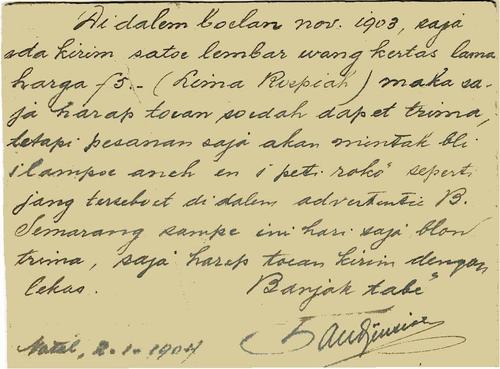 Di dalem boelan nov. 1903, saja
ada kirim satoe lembar wang kertas lama
harga f 5.- (Lima Roepiah) maka sa-
ja harap toean soedah dapet trima,
tetapi pesanan saja akan mintak bli
1 lampoe aneh en 1 peti roko' seperti
jang terseboet di dalem advertentie B.
Semarang sampe ini hari saja blon
trima, saja harap toean kirim dengan
lekas. Banjak tabe"
Natal, 2-1-1904